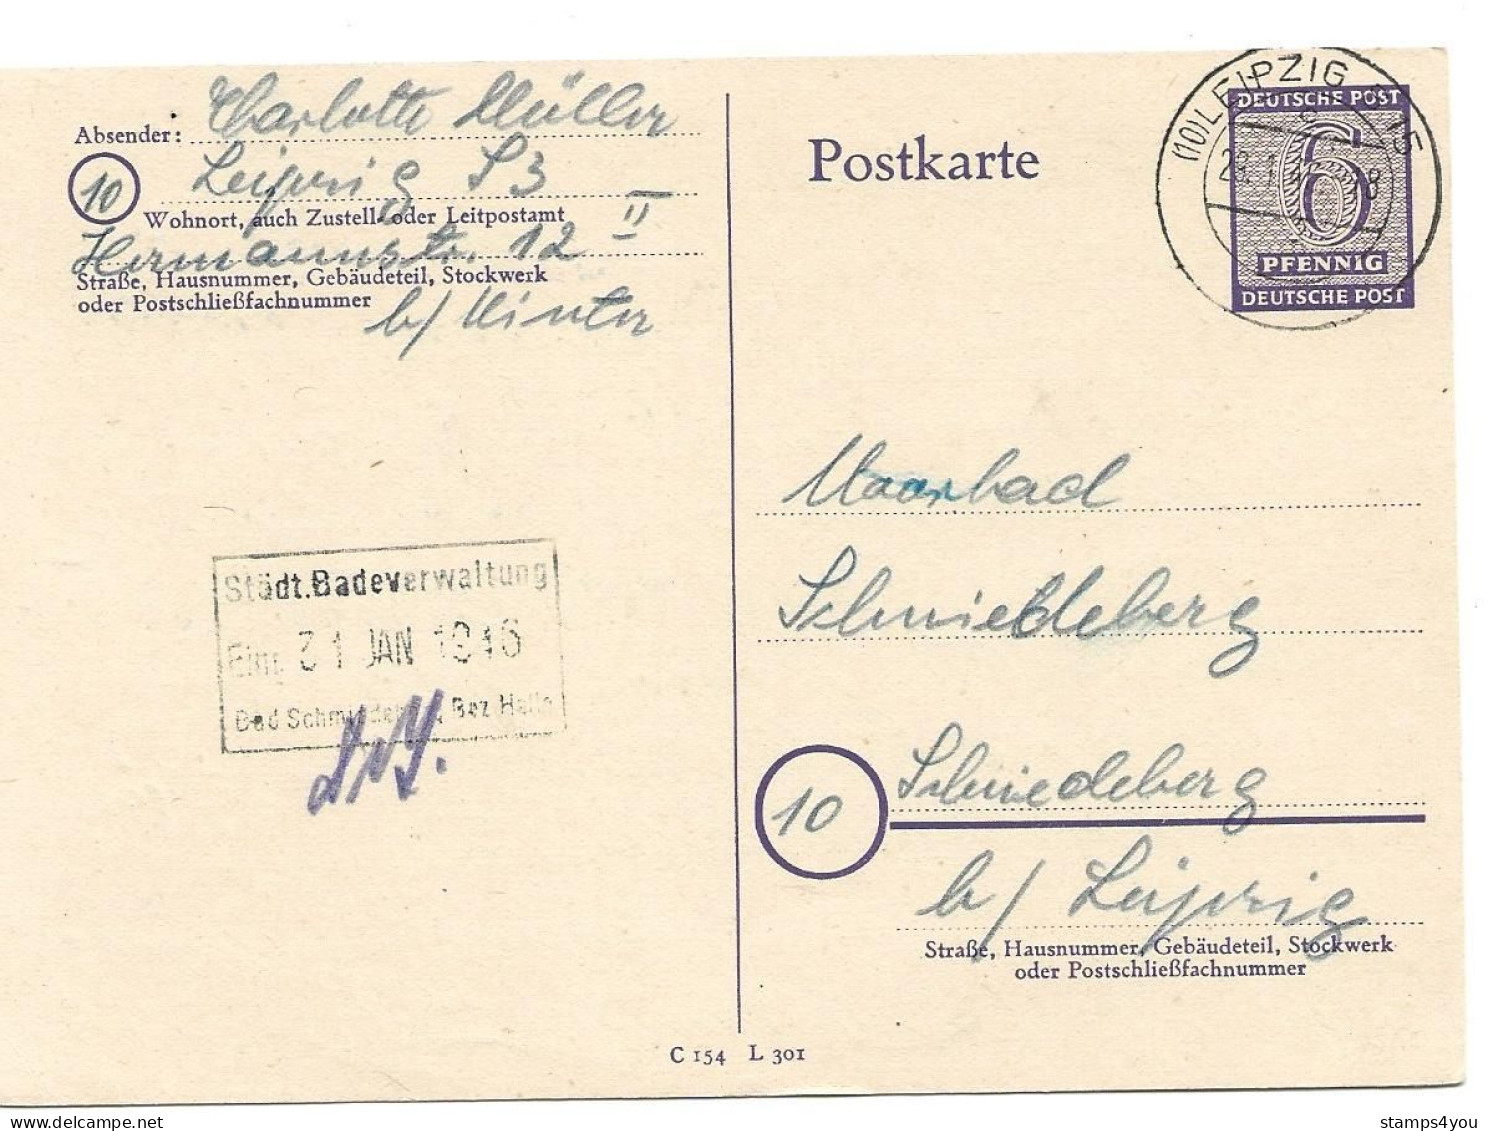 Charlotte Müller
Absender:
Leipzig S3
10
Wohnort, auch Zustell- oder Leitpostamt
II
Hermannstr. 12
Straße, Hausnummer, Gebäudeteil, Stockwerk
oder Postschließfachnummer
b/ Winter
Postkarte
(10) LEIPZIG
DEUTSCHE POST
6
PFENNIG
DEUTSCHE POST
Moorbad
Schmiedeberg
10
Schmiedeberg
b/ Leipzig
Straße, Hausnummer, Gebäudeteil, Stockwerk
oder Postschließfachnummer
Städt. Badeverwaltung
31 JAN 1946
Bad Schmiedeberg, Bez Halle
C 154 L 301
stamps4you.com